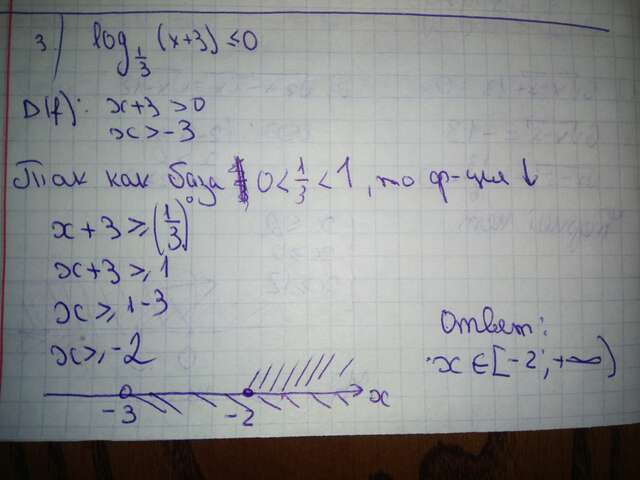 3) log_{1/3} (x+3) ≤ 0
D(f): x+3>0
x>-3
Так как база 0<1/3<1, то ф-ция ↓
x+3 ≥ (1/3)^0
x+3 ≥ 1
x ≥ 1-3
x ≥ -2
-3 -2 x
Ответ:
x∈[-2; +∞)